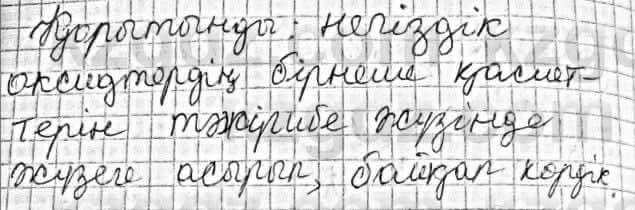 Қорытынды: негіздік
оксидтердің бірнеше қасиет-
терін тәжірибе жүзінде
жүзеге асырып, байқап көрдік.